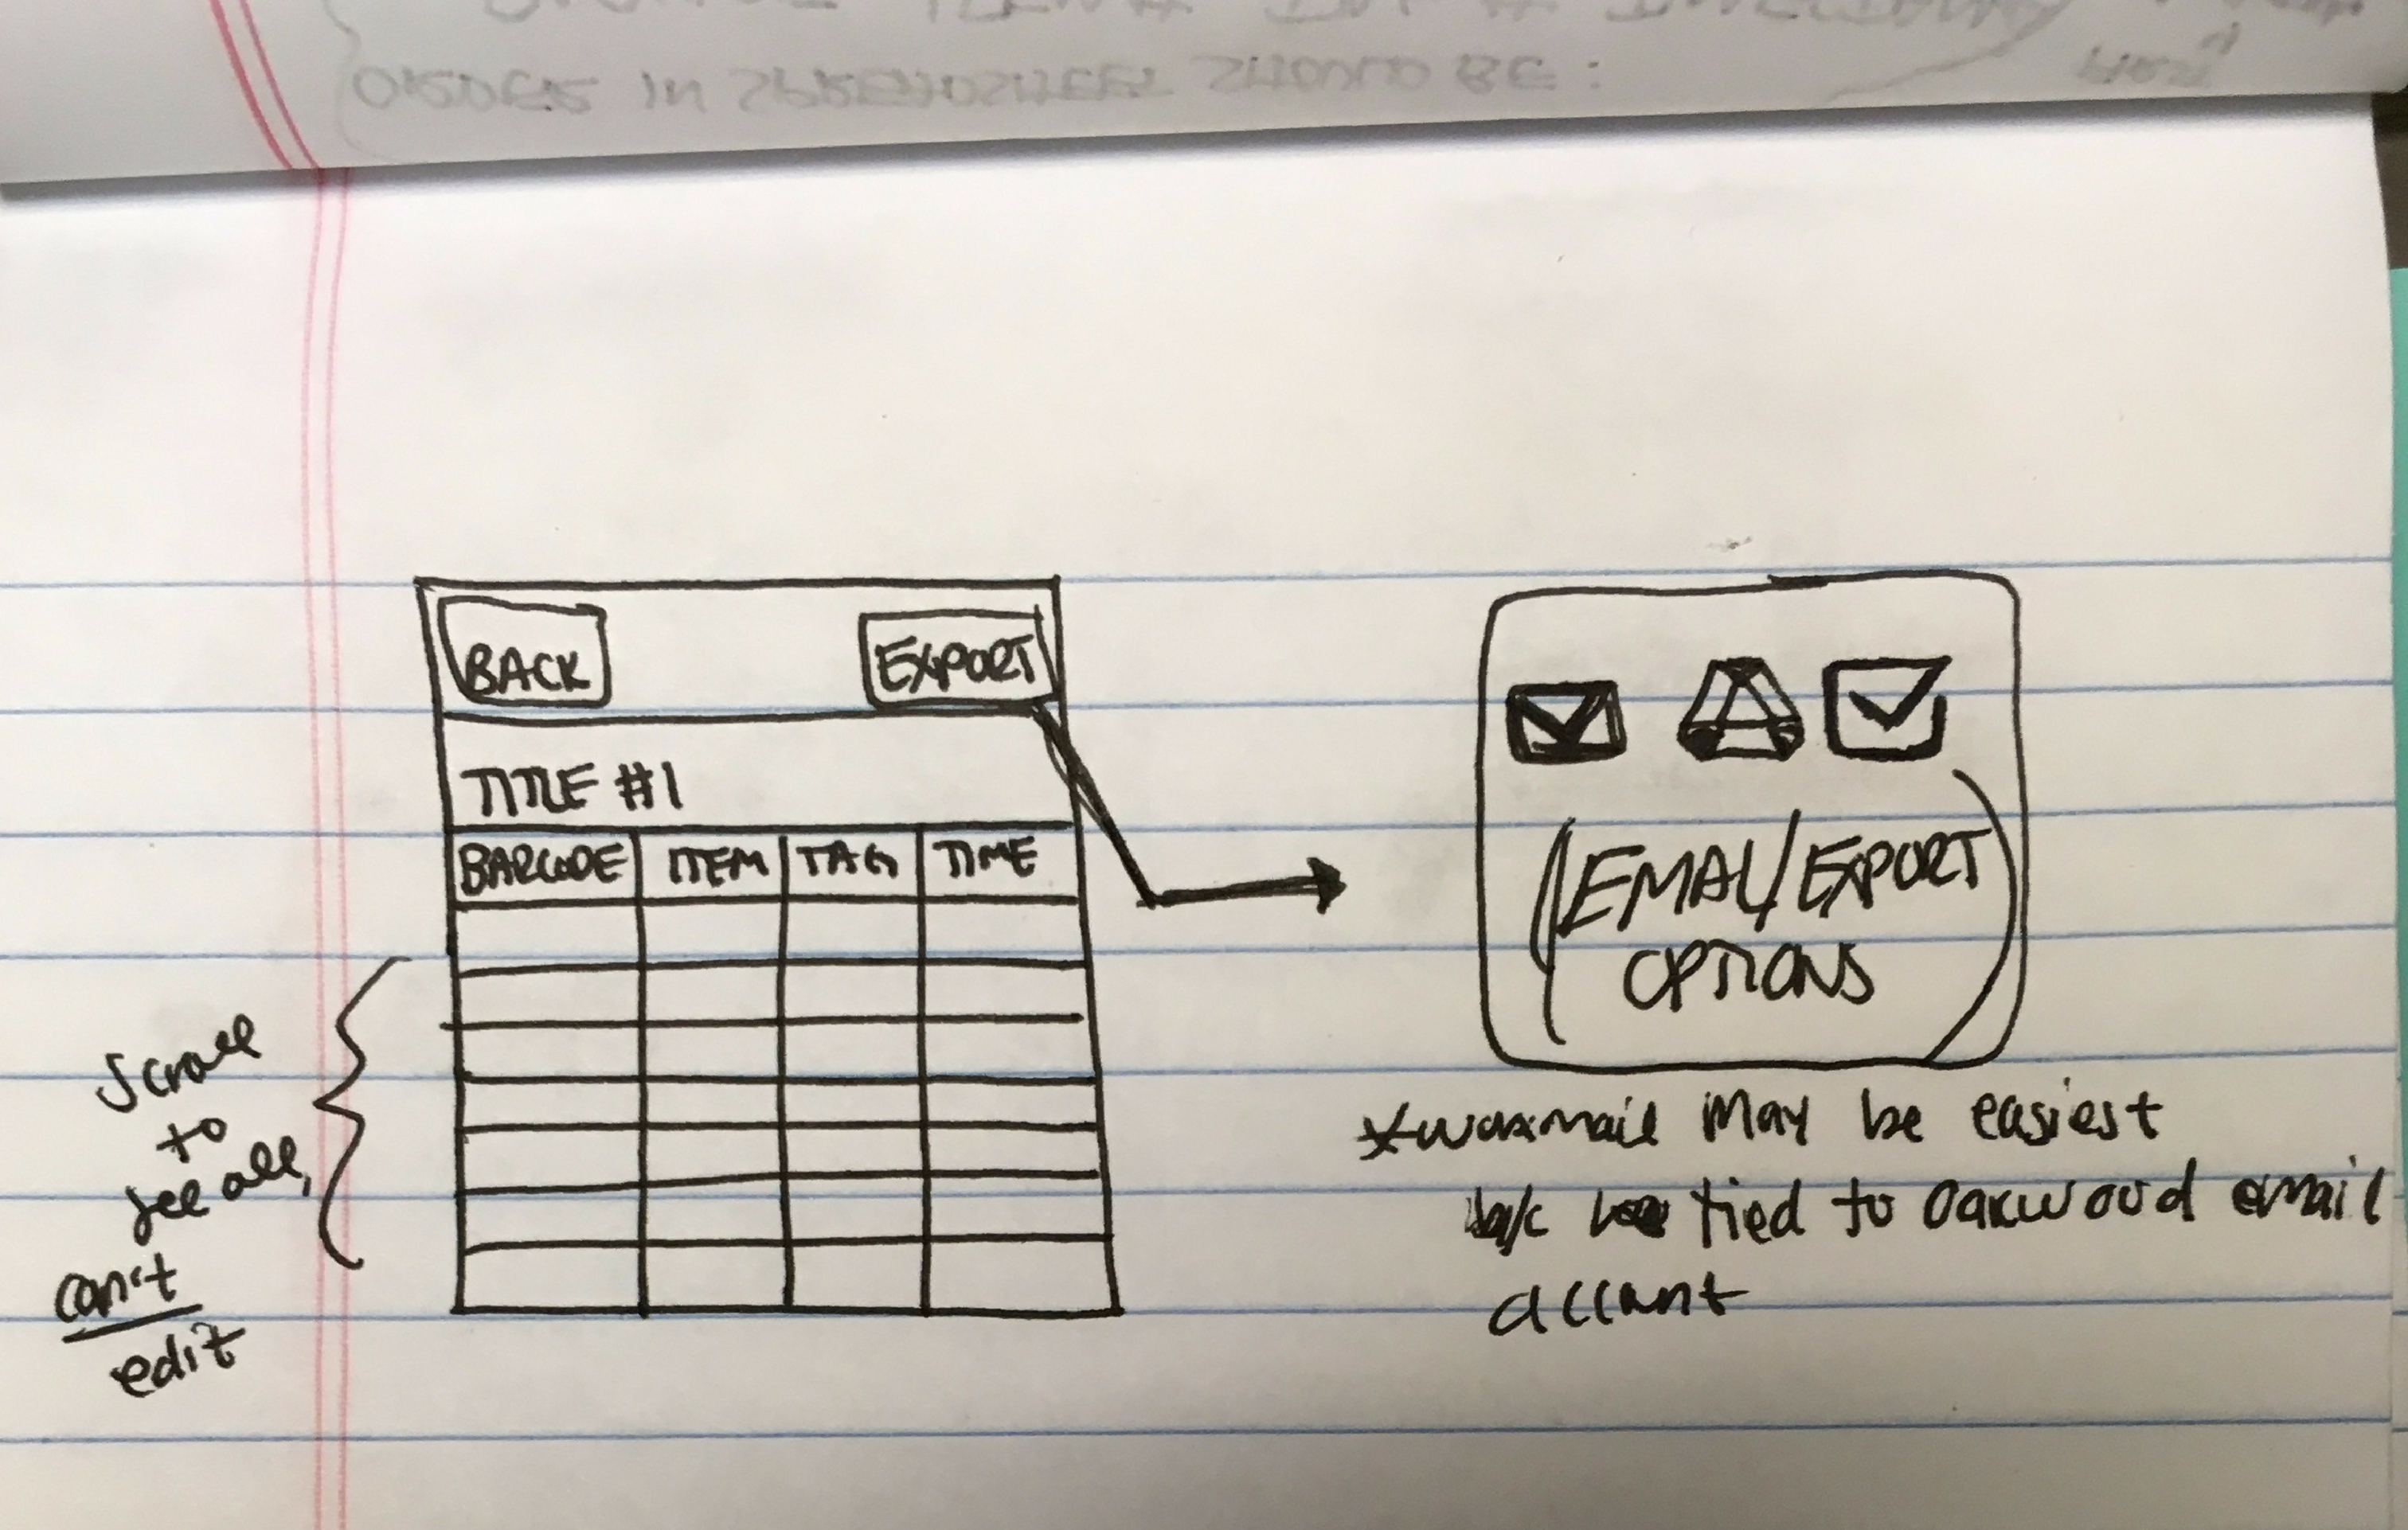 ORDER IN SPREADSHEET SHOULD BE:
BACK
EXPORT
TITLE #1
BARCODE ITEM TAG TIME
Scroll
to
see all,
can't
edit
(EMAIL/EXPORT
OPTIONS)
* may be easiest
b/c tied to Oakwood email
account